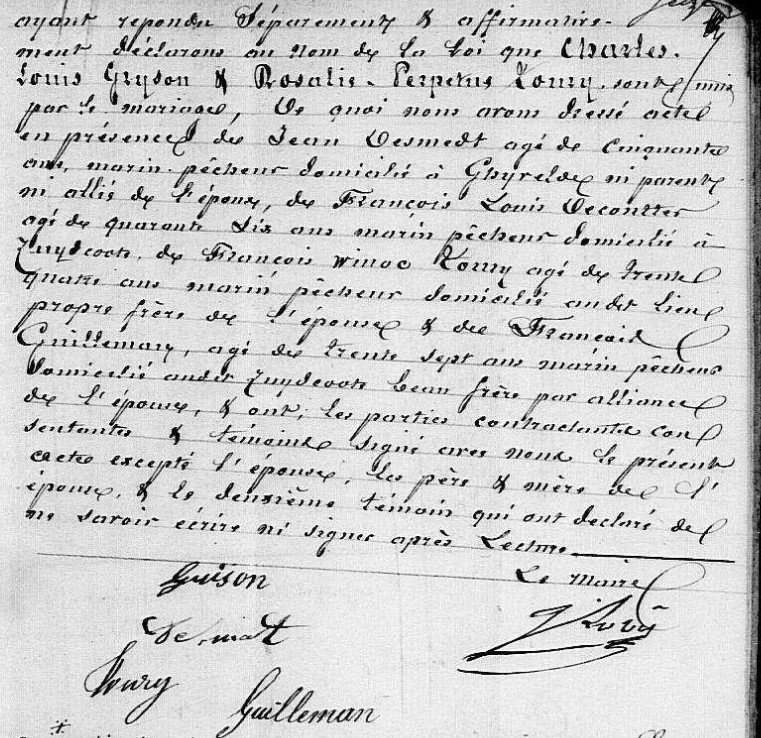 ayant repondu Séparement & affirmative-
ment déclarons au nom de la loi que Charles-
Louis Gryson & Rosalie-Perpetue Loury sont unis
par le mariage, De quoi nous avons dressé acte
en présence de Jean Desmedt agé de Cinquante
ans, marin-pêcheur domicilié à Ghyvelde ni parent
ni allié de l'époux, de François Louis Decontter
agé de quarante Six ans marin pêcheur domicilié à
Zuydcoote, de François Winoc Loury agé de trente
quatre ans marin pêcheur domicilié audit lieu
propre frère de l'épouse & de François
Guillemary, agé de trente sept ans marin pêcheur
domicilié audit Zuydcoote beau frère par alliance
de l'épouse, & ont, les parties contractantes con
sentantes & témoins signé avec nous le présent
acte excepté l'épouse, les père & mère de l'
épouse, & le deuxième témoin qui ont declaré de
ne savoir écrire ni signer après Lecture
Guison
Le Maire
Desmedt
Loury
Guilleman
*